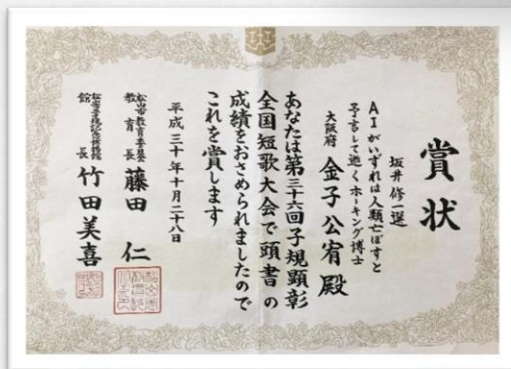 賞状
坂井修一選
AIがいずれは人類亡ぼすと
予言して逝くホーキング博士
大阪府 金子公宥殿
あなたは第三十六回子規顕彰
全国短歌大会で頭書の
成績をおさめられましたので
これを賞します
平成三十年十月二十八日
松山市教育委員会
教育長 藤田仁
松山市立子規記念博物館
館長 竹田美喜